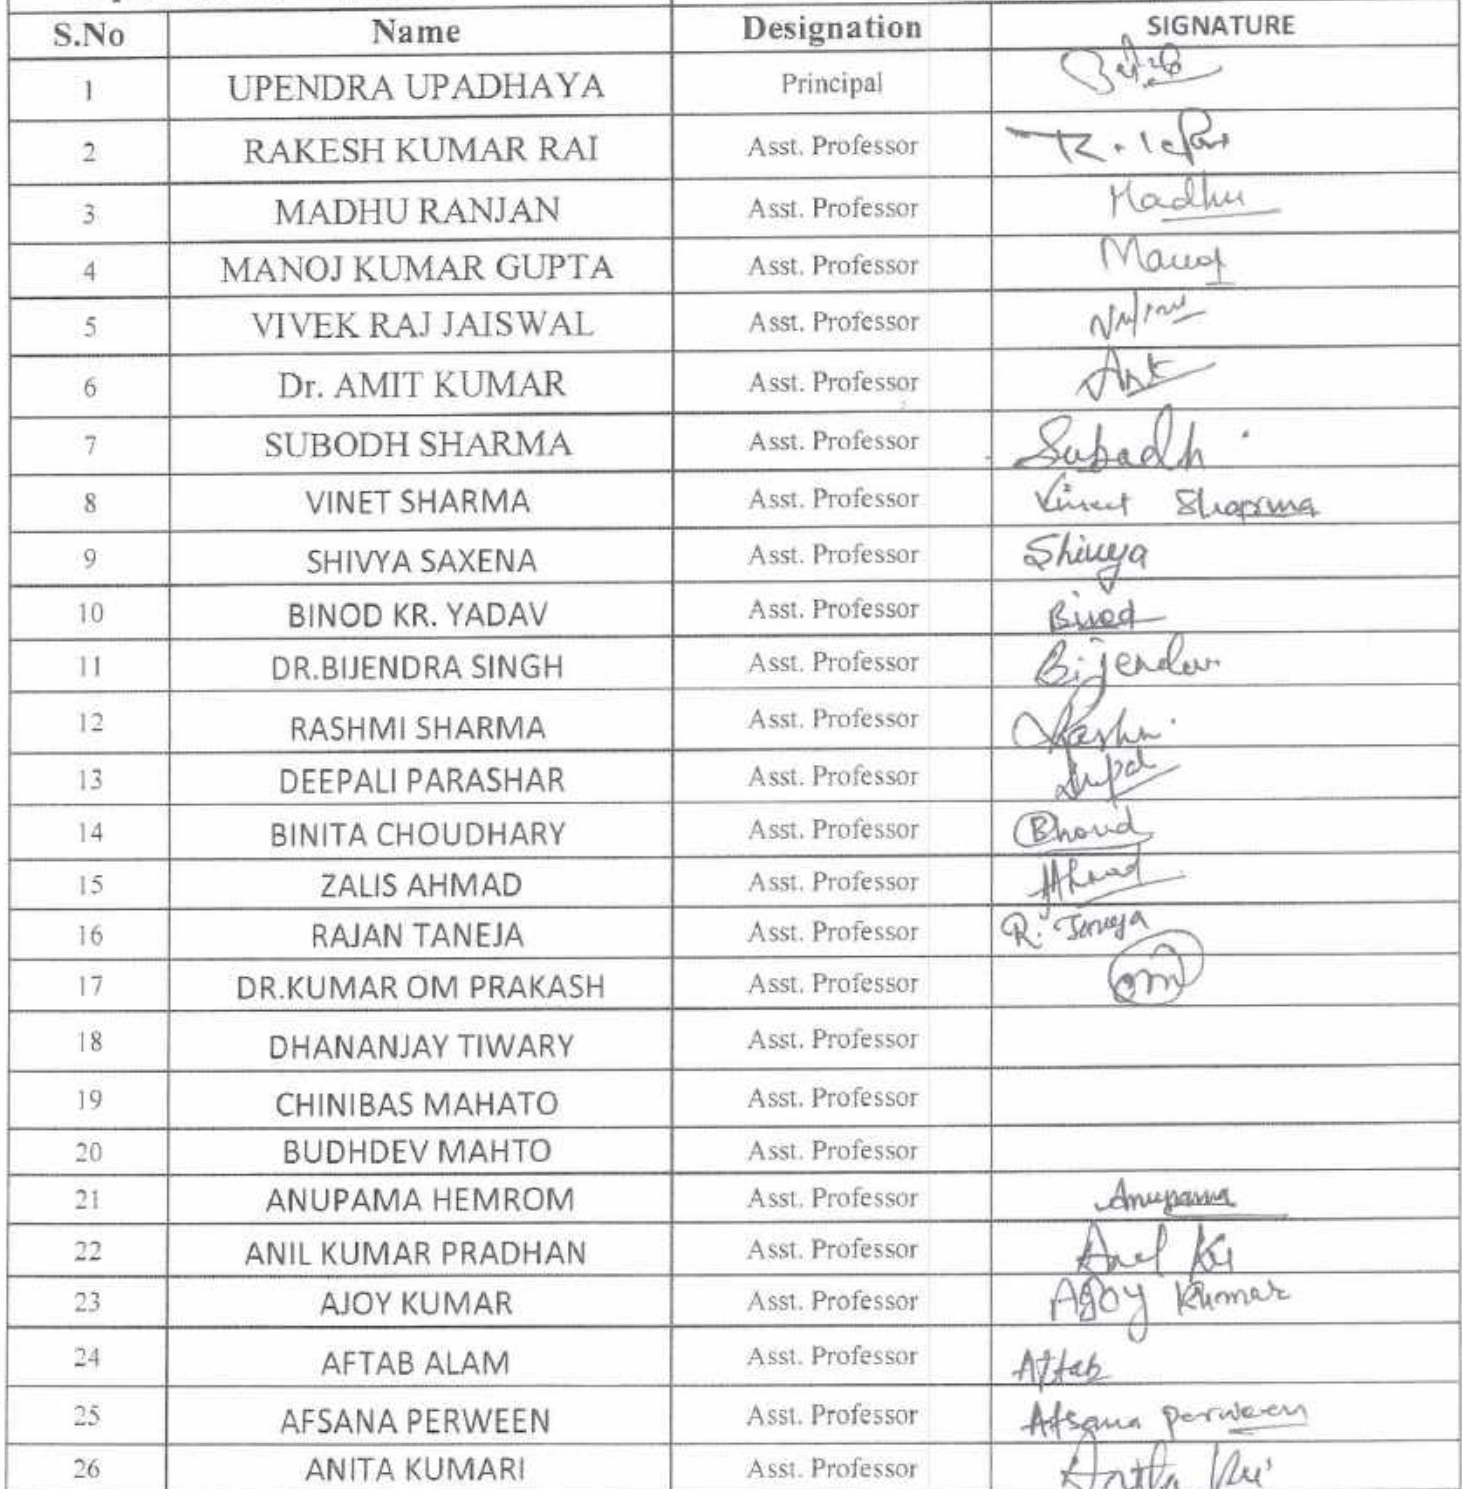 S.No Name Designation SIGNATURE
1 UPENDRA UPADHAYA Principal
2 RAKESH KUMAR RAI Asst. Professor
3 MADHU RANJAN Asst. Professor Madhu
4 MANOJ KUMAR GUPTA Asst. Professor Manoj
5 VIVEK RAJ JAISWAL Asst. Professor
6 Dr. AMIT KUMAR Asst. Professor
7 SUBODH SHARMA Asst. Professor Subodh
8 VINET SHARMA Asst. Professor Vineet Sharma
9 SHIVYA SAXENA Asst. Professor Shivya
10 BINOD KR. YADAV Asst. Professor Binod
11 DR.BIJENDRA SINGH Asst. Professor Bijendra
12 RASHMI SHARMA Asst. Professor Rashmi
13 DEEPALI PARASHAR Asst. Professor
14 BINITA CHOUDHARY Asst. Professor
15 ZALIS AHMAD Asst. Professor Ahmad
16 RAJAN TANEJA Asst. Professor R. Taneja
17 DR.KUMAR OM PRAKASH Asst. Professor
18 DHANANJAY TIWARY Asst. Professor
19 CHINIBAS MAHATO Asst. Professor
20 BUDHDEV MAHTO Asst. Professor
21 ANUPAMA HEMROM Asst. Professor Anupama
22 ANIL KUMAR PRADHAN Asst. Professor Anil Kr
23 AJOY KUMAR Asst. Professor AJOY Kumar
24 AFTAB ALAM Asst. Professor Aftab
25 AFSANA PERWEEN Asst. Professor Afsana Perween
26 ANITA KUMARI Asst. Professor Anita